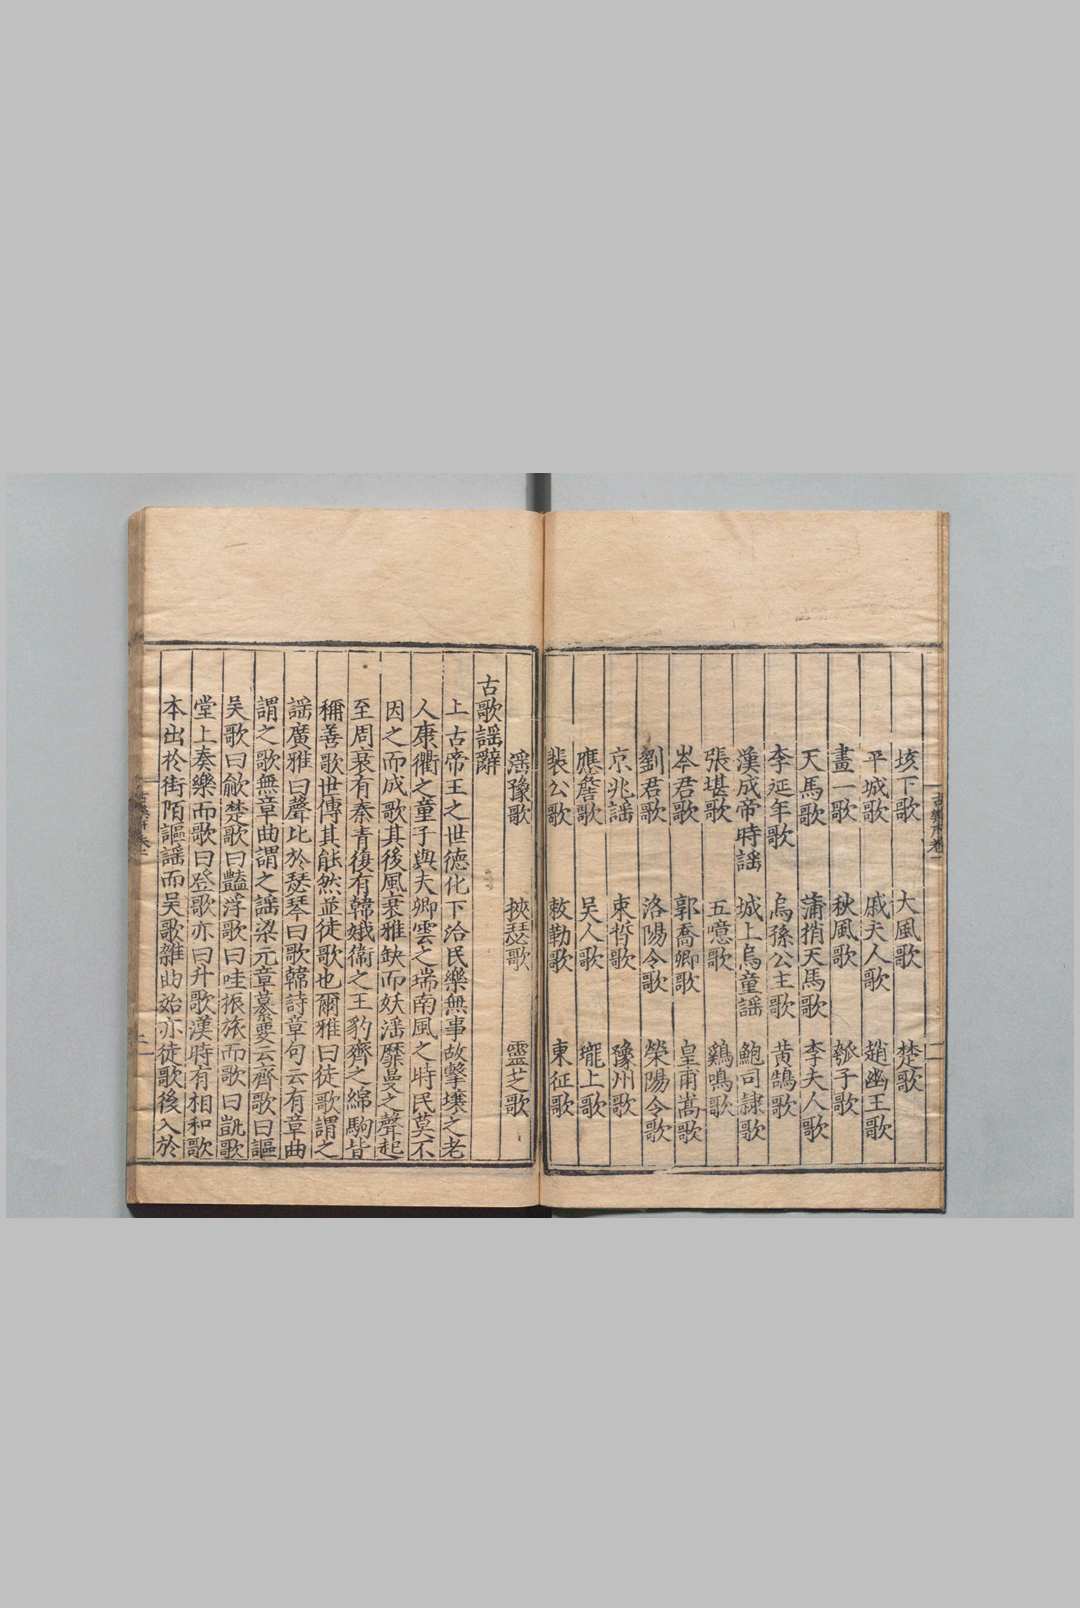 垓下歌 大風歌 楚歌
平城歌 戚夫人歌 趙幽王歌
畫一歌 秋風歌 瓠子歌
天馬歌 蒲捎天馬歌 李夫人歌
李延年歌 烏孫公主歌 黃鵠歌
漢成帝時謡 城上烏童謡 鮑司隷歌
張堪歌 五噫歌 雞鳴歌
岑君歌 郭喬卿歌 皇甫嵩歌
劉君歌 洛陽令歌 滎陽令歌
京兆謡 束晳歌 豫州歌
應詹歌 吳人歌 隴上歌
裴公歌 敕勒歌 東征歌
滛豫歌 挾瑟歌 靈芝歌
古歌謡辭
上古帝王之世德化下洽民樂無事故擊壤之老
人康衢之童子與夫卿雲之瑞南風之時民莫不
因之而成歌其後風衰雅缺而妖滛靡曼之聲起
至周衰有秦青復有韓娥衞之王豹齊之綿駒皆
稱善歌世傳其能然並徒歌也爾雅曰徒歌謂之
謡廣雅曰聲比於琴瑟曰歌韓詩章句云有章曲
謂之歌無章曲謂之謡梁元章纂要云齊歌曰謳
吳歌曰歈楚歌曰豔浮歌曰哇振旅而歌曰凱歌
堂上奏樂而歌曰登歌亦曰升歌漢時有相和歌
本出於街陌謳謡而吳歌雜曲始亦徒歌後入於